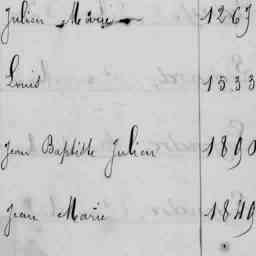 Julien Marie 1267
Louis 1533
Jean Baptiste Julien 1890
Jean Marie 1849